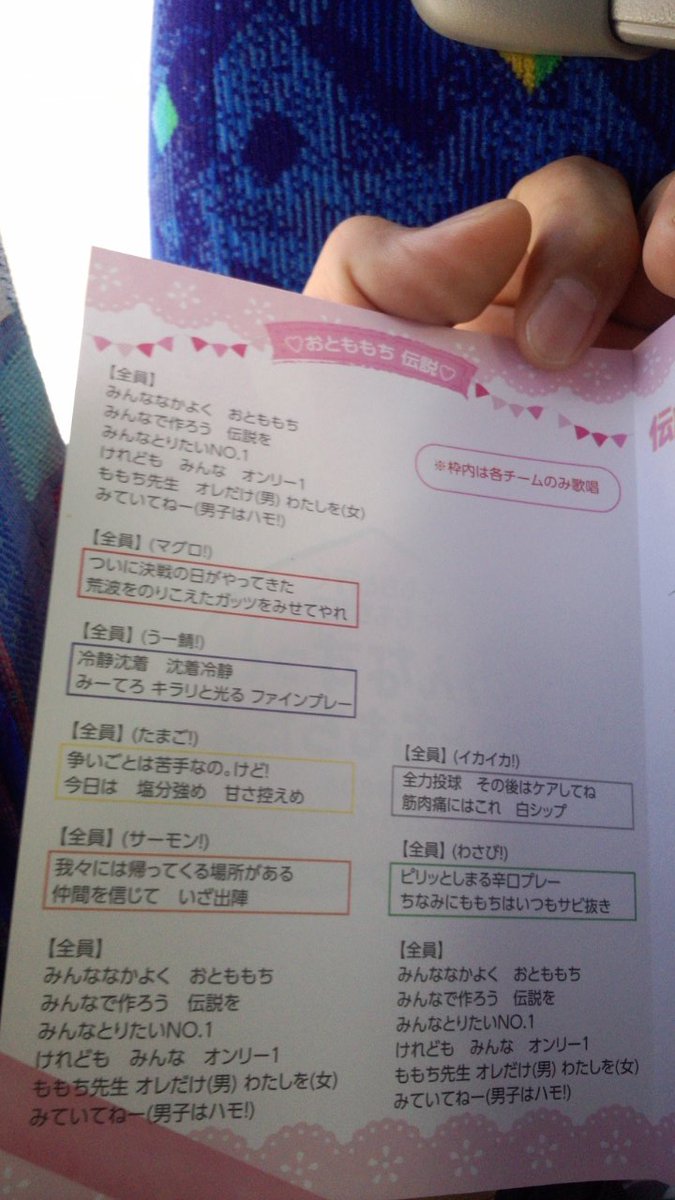 ♡おとももち 伝説♡
【全員】
みんななかよく　おとももち
みんなで作ろう　伝説を
みんなとりたいNO.1
けれども　みんな　オンリー1
ももち先生　オレだけ(男) わたしを(女)
みていてねー(男子はハモ!)
※枠内は各チームのみ歌唱
【全員】(マグロ!)
ついに決戦の日がやってきた
荒波をのりこえたガッツをみせてやれ
【全員】(うー鯖!)
冷静沈着　沈着冷静
みーてろ キラリと光る ファインプレー
【全員】(たまご!)
争いごとは苦手なの。けど!
今日は　塩分強め　甘さ控えめ
【全員】(サーモン!)
我々には帰ってくる場所がある
仲間を信じて　いざ出陣
【全員】
みんななかよく　おとももち
みんなで作ろう　伝説を
みんなとりたいNO.1
けれども　みんな　オンリー1
ももち先生 オレだけ(男) わたしを(女)
みていてねー(男子はハモ!)
【全員】(イカイカ!)
全力投球　その後はケアしてね
筋肉痛にはこれ　白シップ
【全員】(わさび!)
ピリッとしまる辛口プレー
ちなみにももちはいつもサビ抜き
【全員】
みんななかよく　おとももち
みんなで作ろう　伝説を
みんなとりたいNO.1
けれども　みんな　オンリー1
ももち先生 オレだけ(男) わたしを(女)
みていてねー(男子はハモ!)
伝